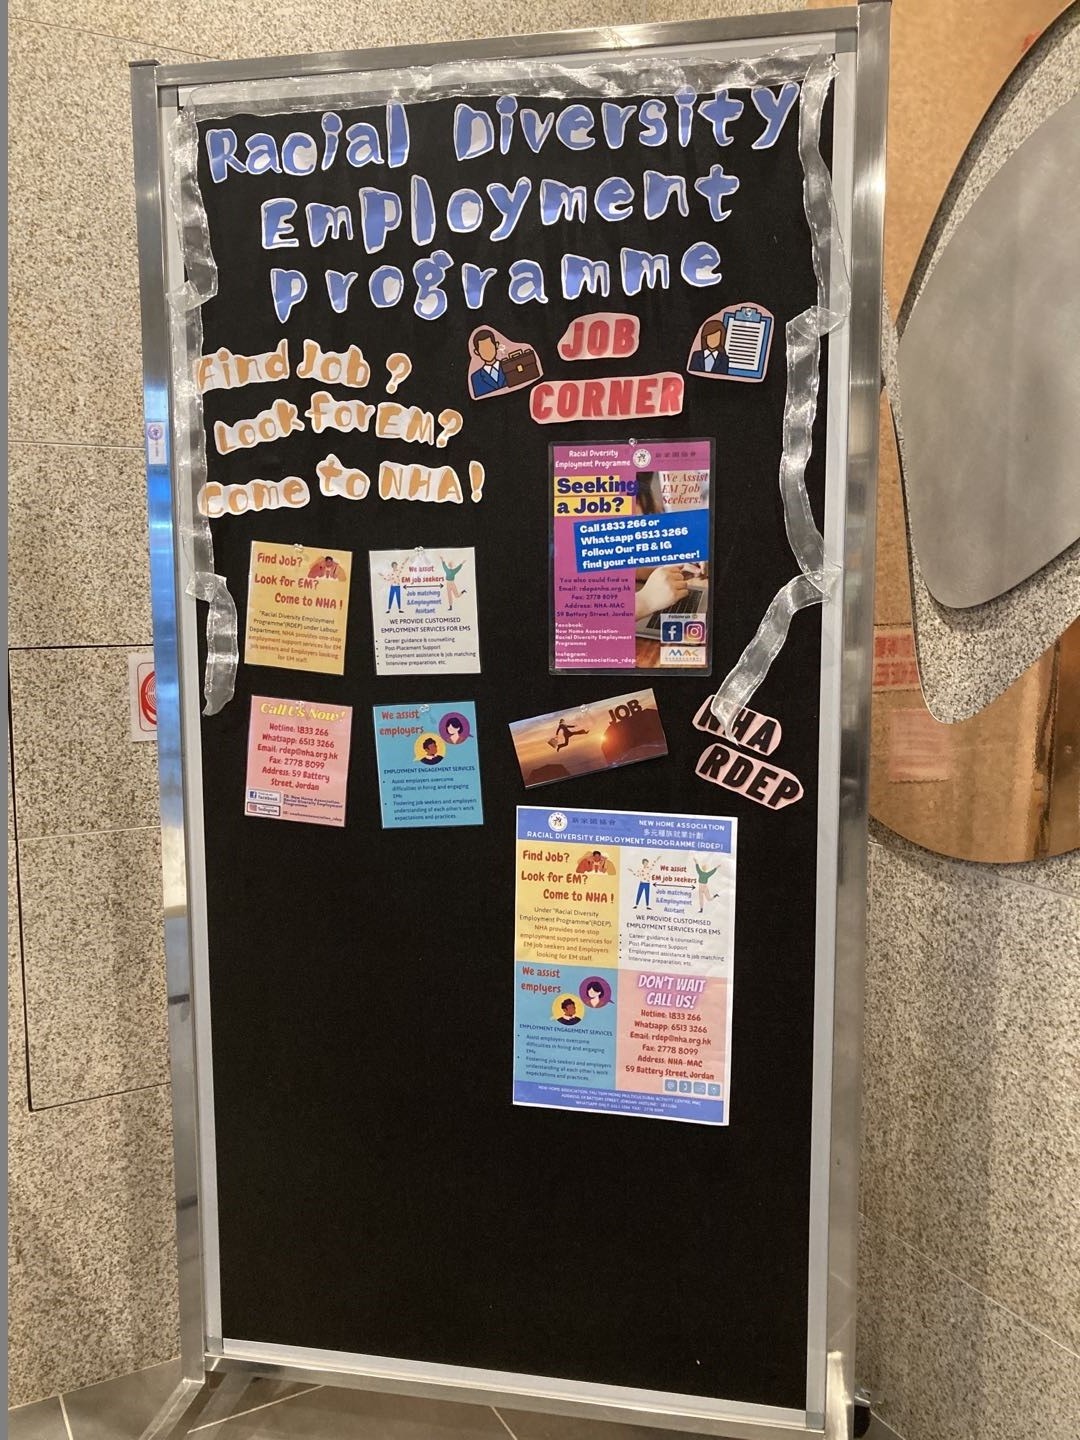 Racial Diversity
Employment
programme
Find Job ?
Look for EM?
Come to NHA!
JOB
CORNER
Find Job?
Look for EM?
Come to NHA !
"Racial Diversity Employment
Programme"(RDEP) under Labour
Department, NHA provides one-stop
employment support services for EM
job seekers and Employers looking
for EM staff.
We assist
EM job seekers
Job matching
&Employment
Assitant
WE PROVIDE CUSTOMISED
EMPLOYMENT SERVICES FOR EMS
Career guidance & counselling
Post-Placement Support
Employment assistance & job matching
Interview preparation, etc.
Racial Diversity
Employment Programme
新家園協會
Seeking
a Job?
We Assist
EM Job
Seekers!
Call 1833 266 or
Whatsapp 6513 3266
Follow Our FB & IG
find your dream career!
You also could find us
Email: rdep@nha.org.hk
Fax: 2778 8099
Address: NHA-MAC
59 Battery Street, Jordan
Follow us
Facebook:
New Home Association-
Racial Diversity Employment
Programme
Instagram:
newhomeassociation_rdep
MAC
Call Us Now!
Hotline: 1833 266
Whatsapp: 6513 3266
Email: rdep@nha.org.hk
Fax: 2778 8099
Address: 59 Battery
Street, Jordan
facebook
FB: New Home Association-
Racial Diversity Employment
Programme
Instagram
IG: newhomeassociation_rdep
We assist
employers
EMPLOYMENT ENGAGEMENT SERVICES
Assist employers overcome
difficulties in hiring and engaging
EMs
Fostering job seekers and employers
understanding of each other's work
expectations and practices.
JOB
NHA
RDEP
新家園協會 NEW HOME ASSOCIATION
多元種族就業計劃
RACIAL DIVERSITY EMPLOYMENT PROGRAMME (RDEP)
Find Job?
Look for EM?
Come to NHA !
Under "Racial Diversity
Employment Programme"(RDEP),
NHA provides one-stop
employment support services for
EM job seekers and Employers
looking for EM staff.
We assist
EM job seekers
Job matching
&Employment
Assitant
WE PROVIDE CUSTOMISED
EMPLOYMENT SERVICES FOR EMS
Career guidance & counselling
Post-Placement Support
Employment assistance & job matching
Interview preparation, etc.
We assist
emplyers
EMPLOYMENT ENGAGEMENT SERVICES
Assist employers overcome
difficulties in hiring and engaging
EMs
Fostering job seekers and employers
understanding of each other's work
expectations and practices.
DON'T WAIT
CALL US!
Hotline: 1833 266
Whatsapp: 6513 3266
Email: rdep@nha.org.hk
Fax: 2778 8099
Address: NHA-MAC
59 Battery Street, Jordan